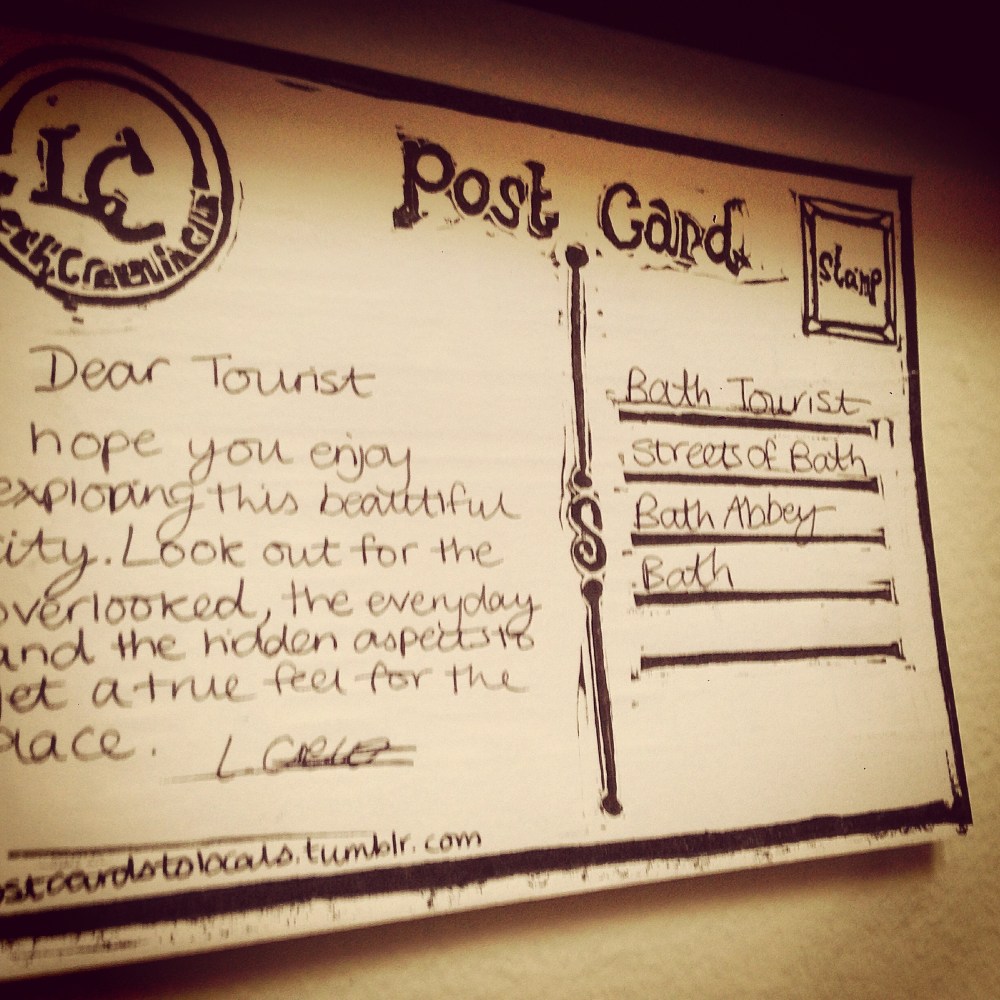 LC
Post Card
stamp
Dear Tourist
hope you enjoy
exploring this beautiful
city. Look out for the
overlooked, the everyday
and the hidden aspects to
get a true feel for the
place.
L.
S
Bath Tourist
Streets of Bath
Bath Abbey
Bath
ostcardstolocals.tumblr.com